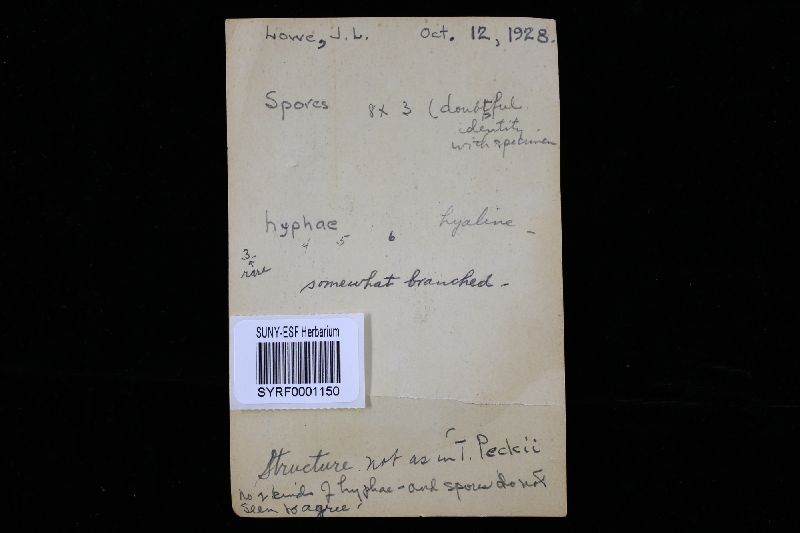 Lowe, J.L. Oct. 12, 1928.
Spores 8x 3 (doubtful
identity
with specimen
hyphae hyaline -
4 5 6
3-
rare
somewhat branched -
SUNY-ESF Herbarium
SYRF0001150
Structure not as in T. Peckii
no 2 kinds of hyphae - and spores do not
seem to agree.